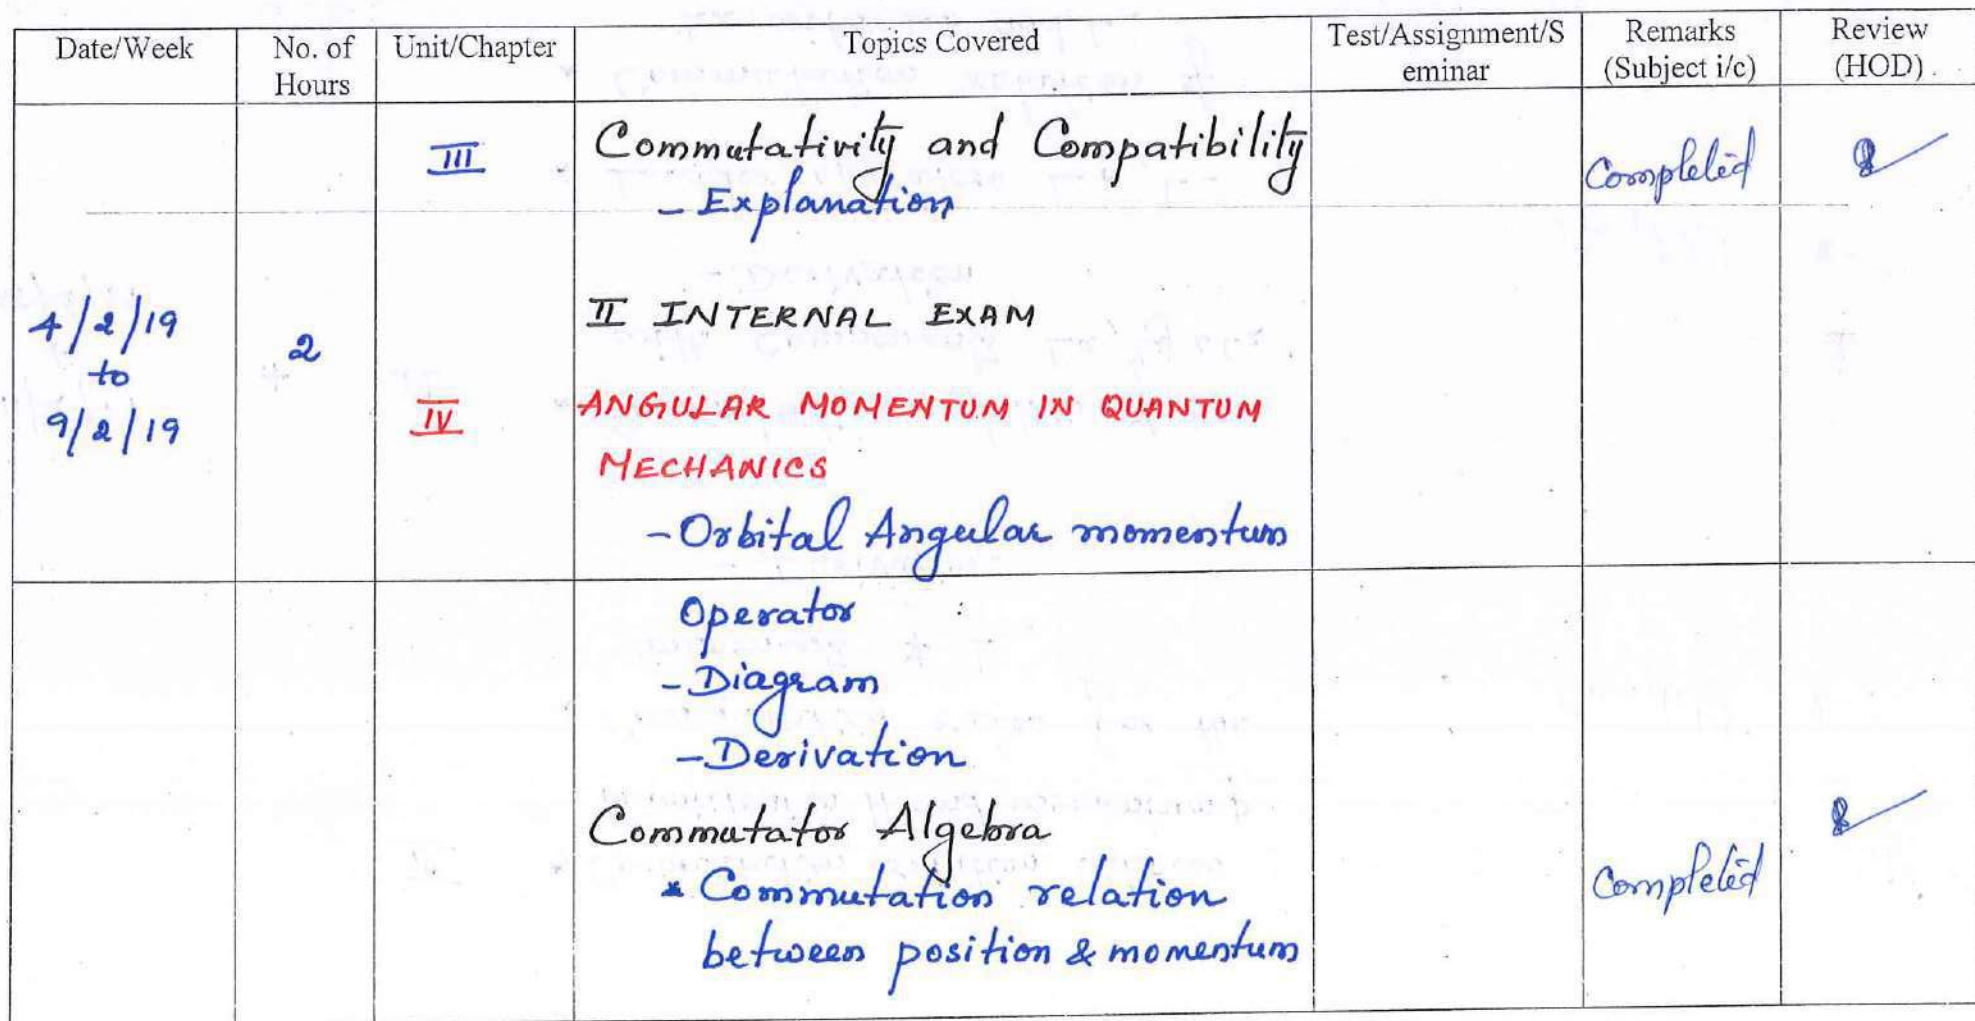 Date/Week No. of Hours Unit/Chapter Topics Covered Test/Assignment/Seminar Remarks (Subject i/c) Review (HOD)
III Commutativity and Compatibility Completed
- Explanation
4/2/19 to 9/2/19 2 II INTERNAL EXAM
IV ANGULAR MOMENTUM IN QUANTUM
MECHANICS
- Orbital Angular momentum
Operator
- Diagram
- Derivation
Commutator Algebra
* Commutation relation Completed
between position & momentum